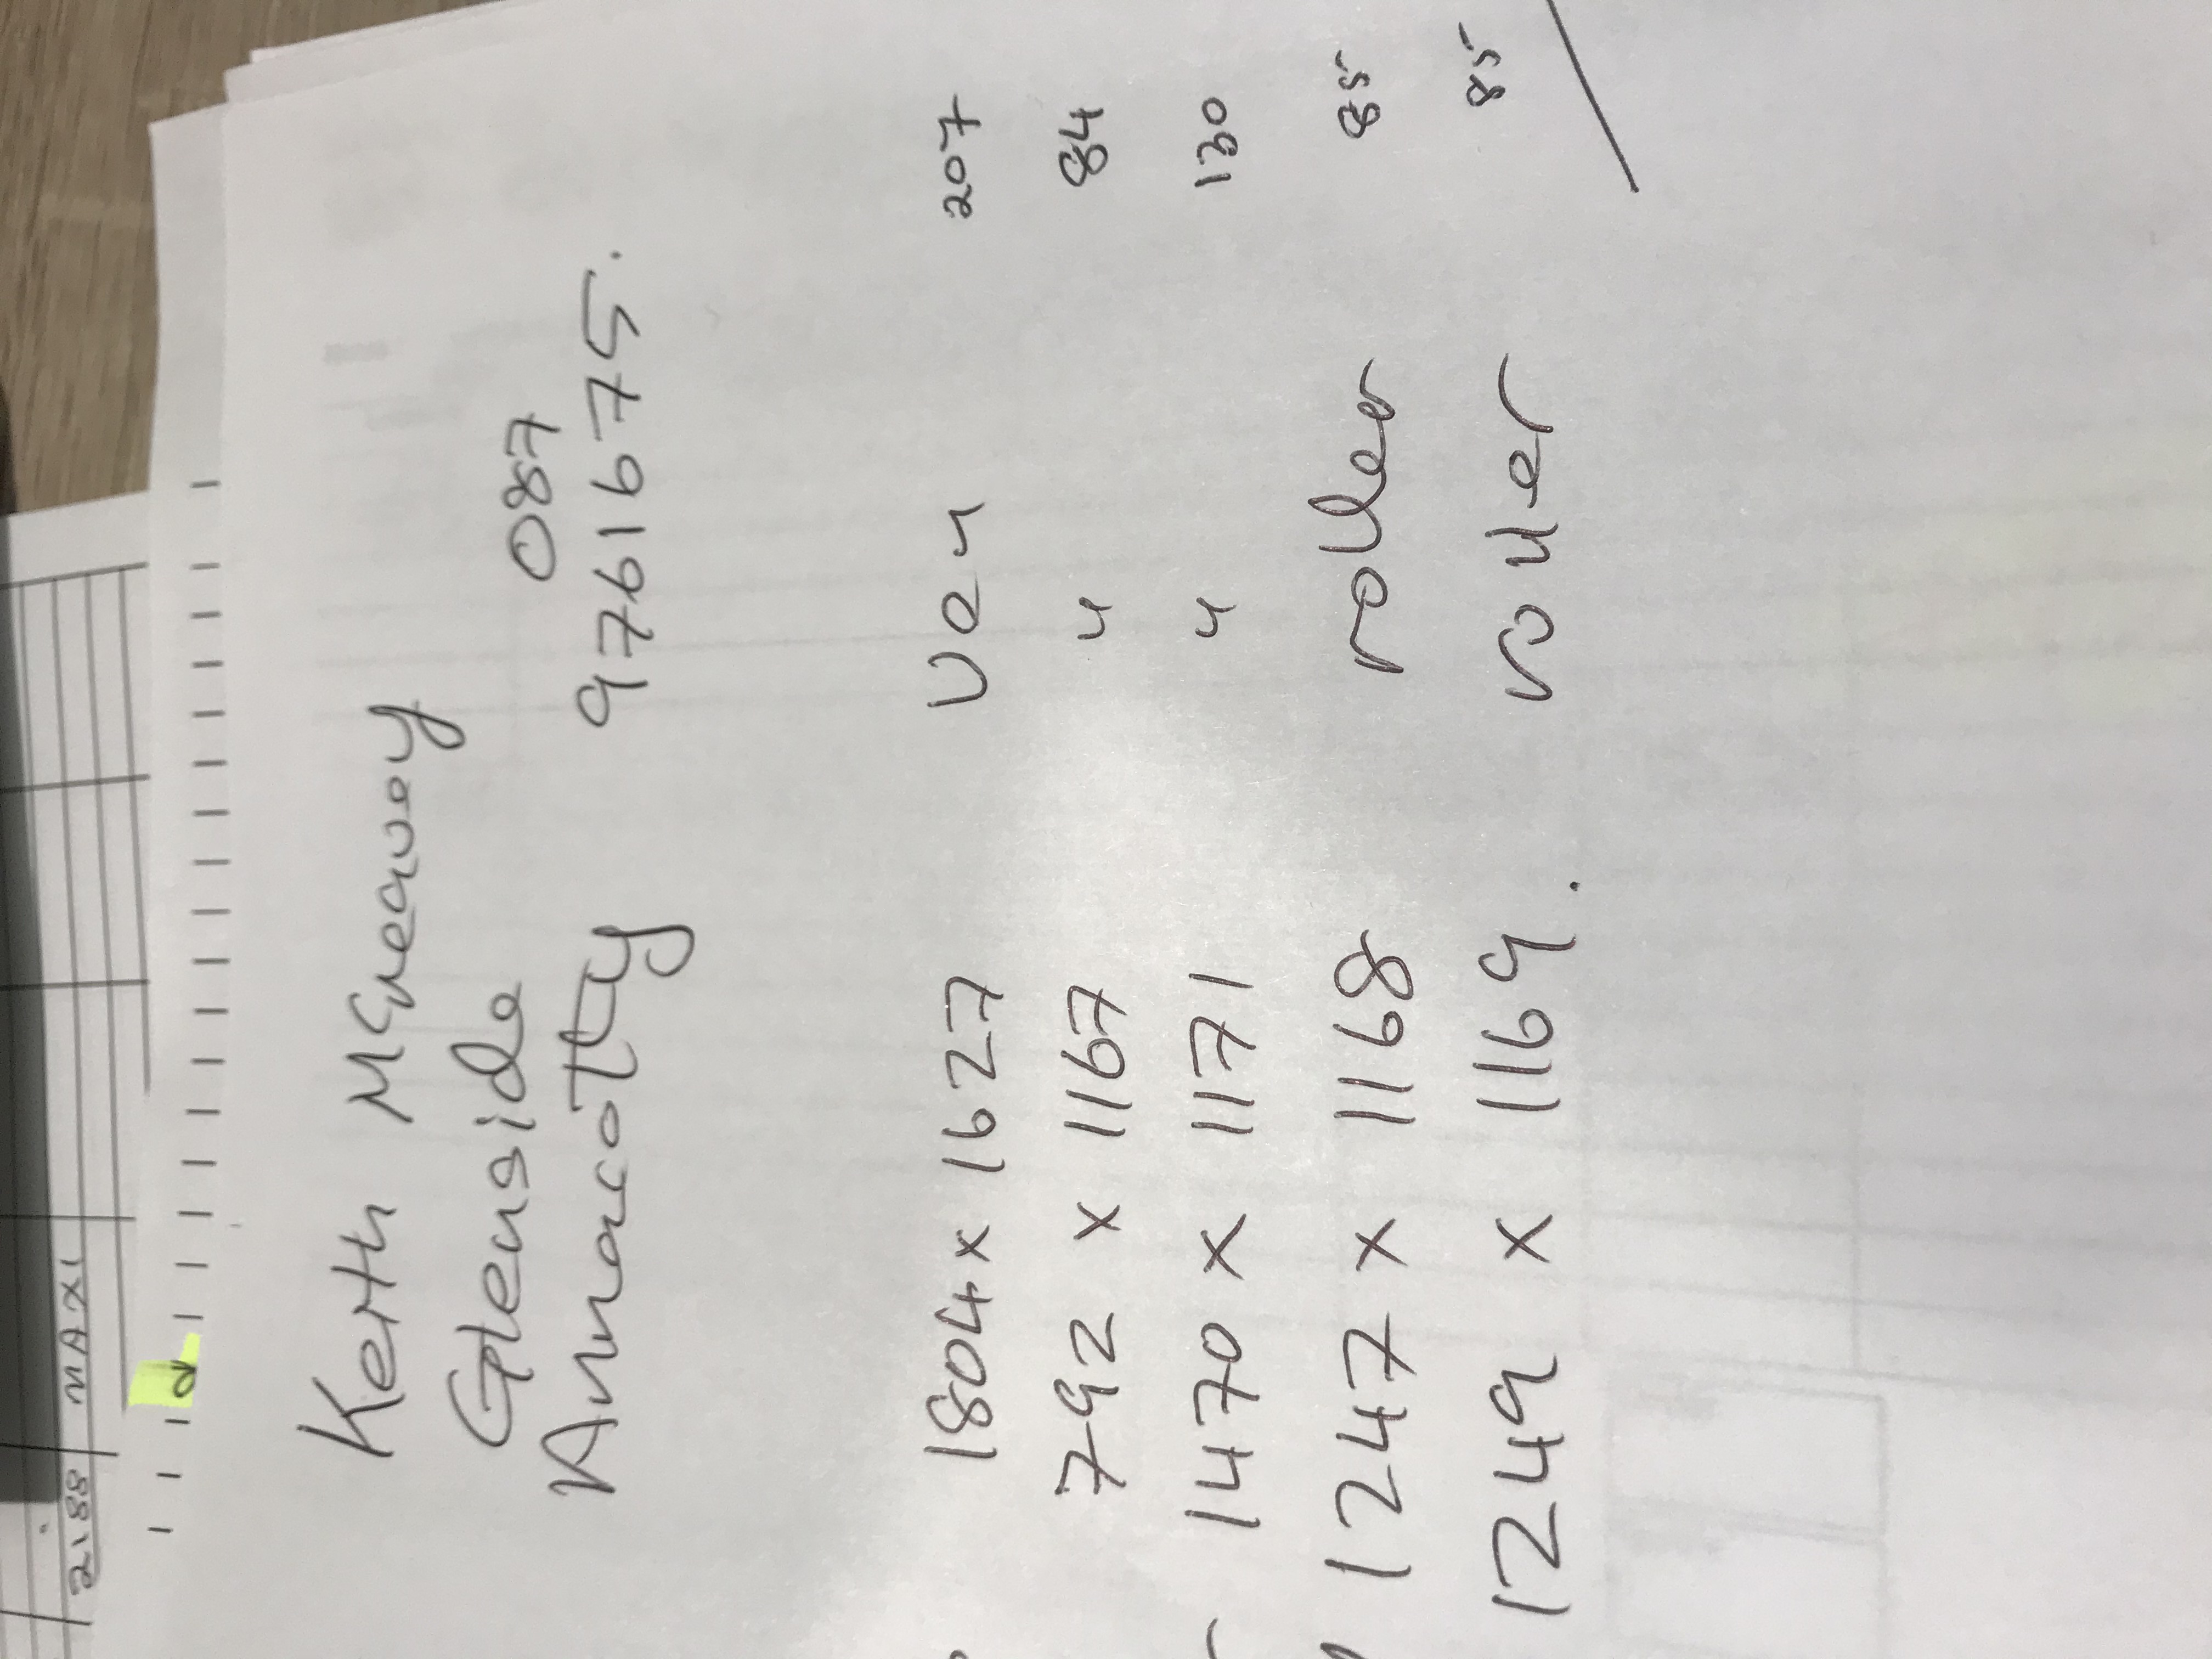 2188 MAXI
Keith McGreavey
Glenside 087
Annacotty 9761675.
1804 x 1627 Ven 207
792 x 1167 " 84
1470 x 1171 " 130
1247 x 1168 roller 85
1249 x 1169. roller 85